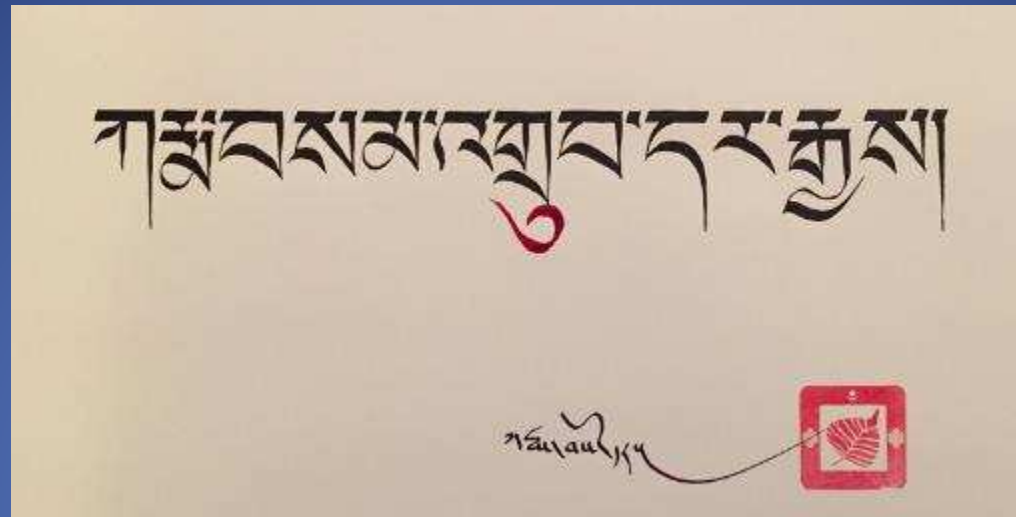 ཀརྨ་བསམ་འགྲུབ་དར་རྒྱས།